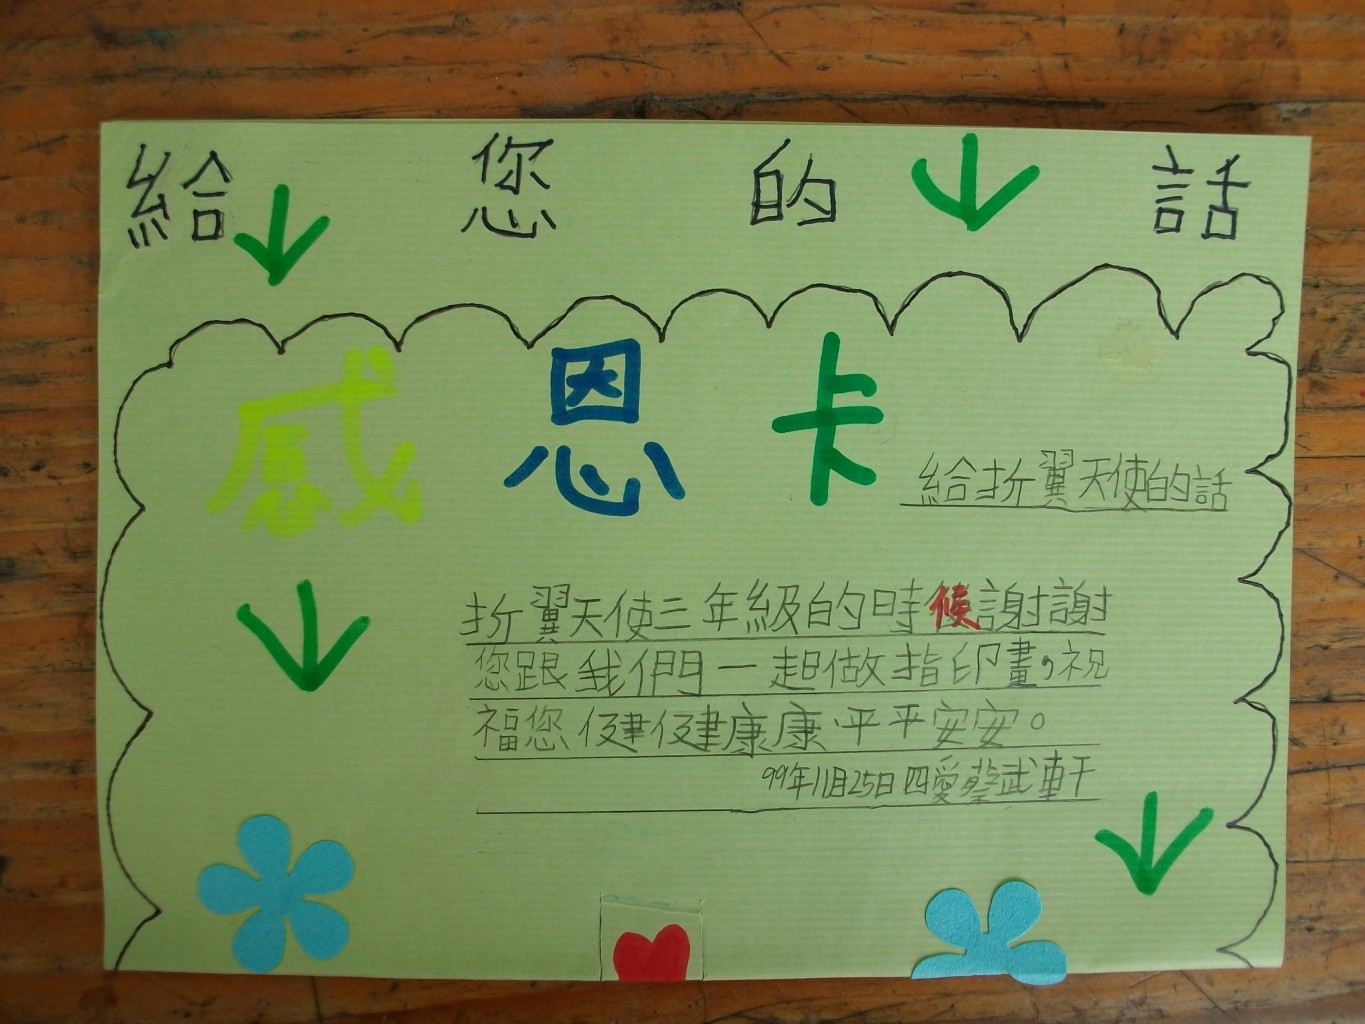 給您的話
感恩卡
給折翼天使的話
折翼天使三年級的時候謝謝
您跟我們一起做指印畫，祝
福您健健康康、平平安安。
99年11月25日四愛蔡武軒